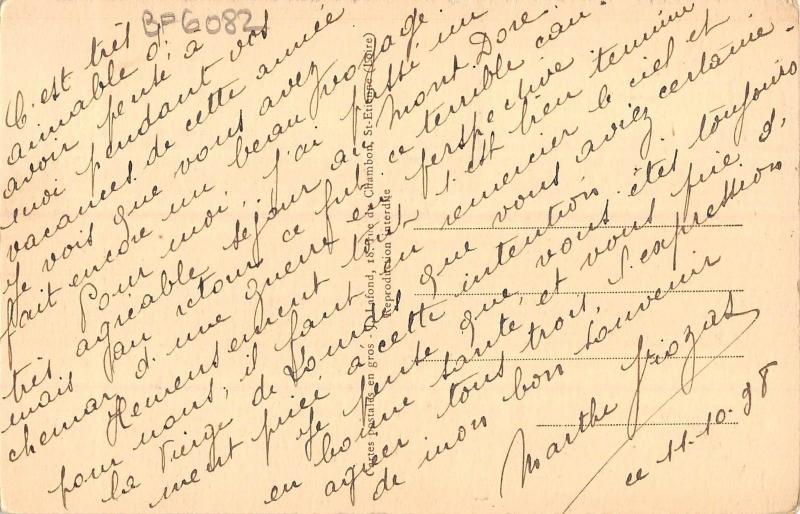 BFG082
C'est très
aimable d'
avoir pensé à
moi pendant vos
vacances de cette année
Je vois que vous avez
fait encore un beau voyage.
Pour moi, j'ai passé un
très agréable séjour au Mont Dore.
mais au retour ce fut ce terrible cau
chemar d'une guerre en perspective.
Heureusement tout s'est bien terminé
pour nous; il faut en remercier le ciel et
la Vierge de que vous aviez certaine-
ment priée à cette intention.
Je pense que vous êtes toujours
en bonne santé et vous prie d'
agréer tous trois, l'expression
de mon bon souvenir
Marthe
ce 11.10.38
Cartes postales en gros - Lafond, 18, rue du Chambon, St-Etienne (Loire)
Reproduction interdite